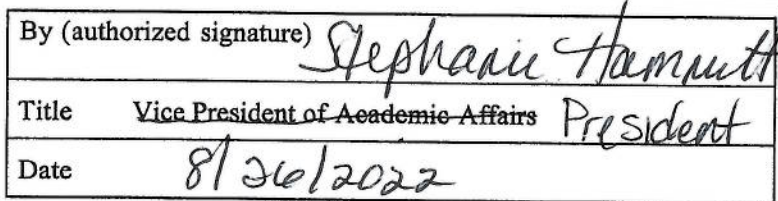 By (authorized signature) Stephanie Hammitt
Title Vice President of Academic Affairs President
Date 8/26/2022